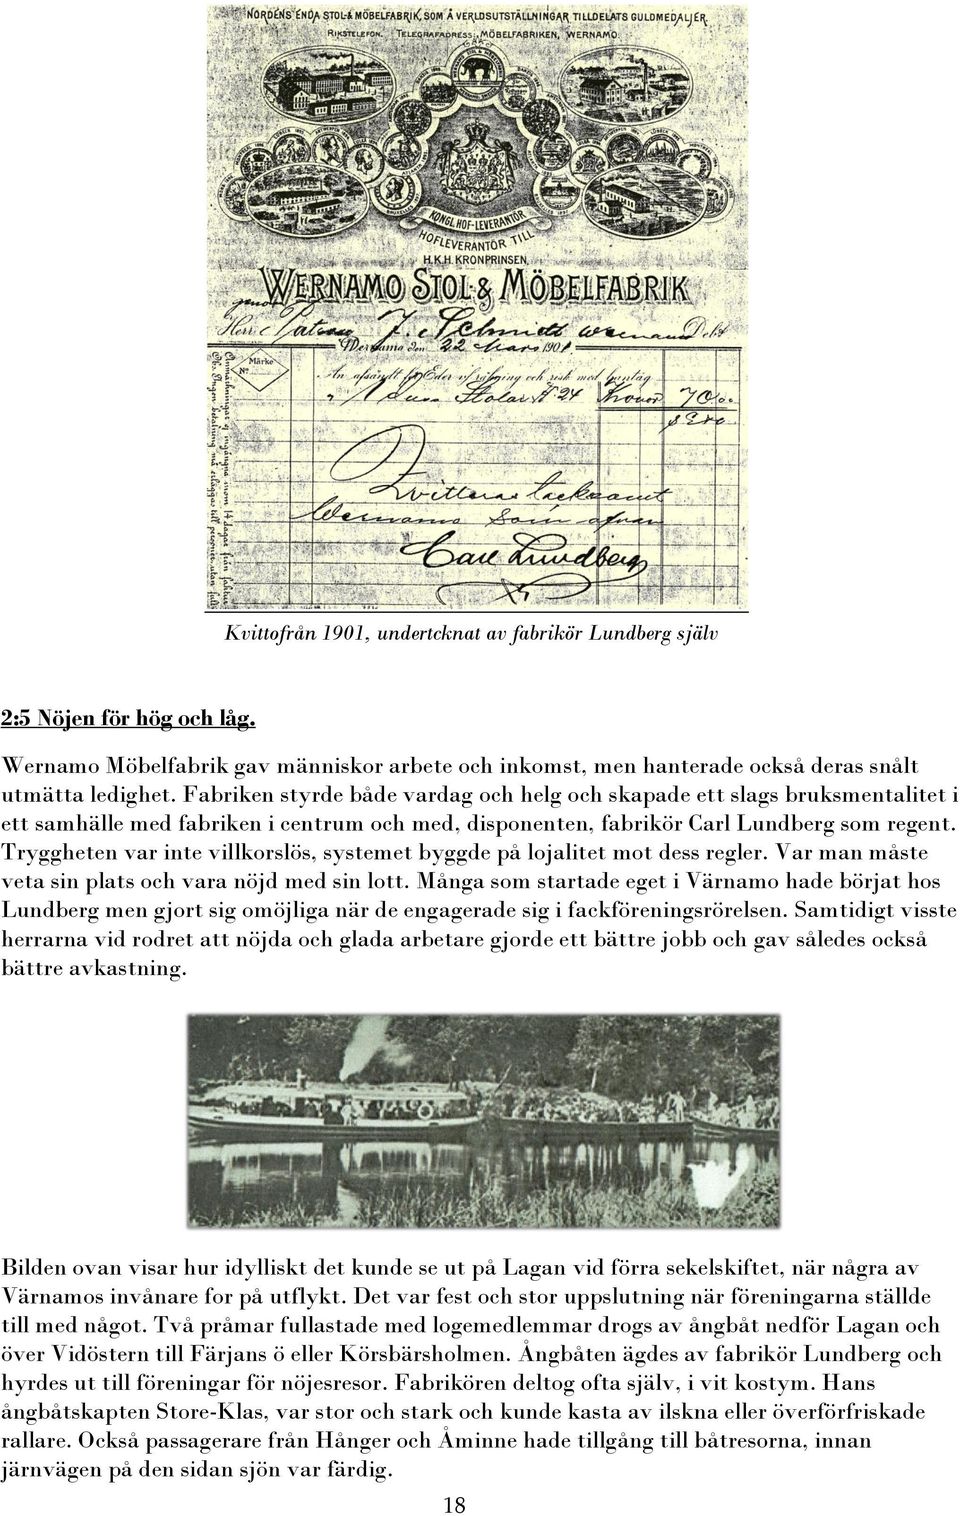 NORDENS ENDA STOL- & MÖBELFABRIK, SOM Å VERLDSUTSTÄLLNINGAR TILLDELATS GULDMEDALJER.
RIKSTELEFON. TELEGRAFADRESS: MÖBELFABRIKEN, WERNAMO.
KONGL. HOF-LEVERANTÖR
HOFLEVERANTÖR TILL
H.K.H. KRONPRINSEN.
WERNAMO STOL- & MÖBELFABRIK
genom
Herr J. Schmidt Wernamo Debet
Wernamo den 22 Mars 1901.
Märke
Nº
An afsändt för Eder räkning och risk med bantåg
1 Duss Stolar Nº 24 Kronor 70.00
Qvitteras tacksamt
Wernamo som ofvan
Carl Lundberg
Kvittofrån 1901, undertcknat av fabrikör Lundberg själv
2:5 Nöjen för hög och låg.
Wernamo Möbelfabrik gav människor arbete och inkomst, men hanterade också deras snålt
utmätta ledighet. Fabriken styrde både vardag och helg och skapade ett slags bruksmentalitet i
ett samhälle med fabriken i centrum och med, disponenten, fabrikör Carl Lundberg som regent.
Tryggheten var inte villkorslös, systemet byggde på lojalitet mot dess regler. Var man måste
veta sin plats och vara nöjd med sin lott. Många som startade eget i Värnamo hade börjat hos
Lundberg men gjort sig omöjliga när de engagerade sig i fackföreningsrörelsen. Samtidigt visste
herrarna vid rodret att nöjda och glada arbetare gjorde ett bättre jobb och gav således också
bättre avkastning.
Bilden ovan visar hur idylliskt det kunde se ut på Lagan vid förra sekelskiftet, när några av
Värnamos invånare for på utflykt. Det var fest och stor uppslutning när föreningarna ställde
till med något. Två pråmar fullastade med logemedlemmar drogs av ångbåt nedför Lagan och
över Vidöstern till Färjans ö eller Körsbärsholmen. Ångbåten ägdes av fabrikör Lundberg och
hyrdes ut till föreningar för nöjesresor. Fabrikören deltog ofta själv, i vit kostym. Hans
ångbåtskapten Store-Klas, var stor och stark och kunde kasta av ilskna eller överförfriskade
rallare. Också passagerare från Hånger och Åminne hade tillgång till båtresorna, innan
järnvägen på den sidan sjön var färdig.
18